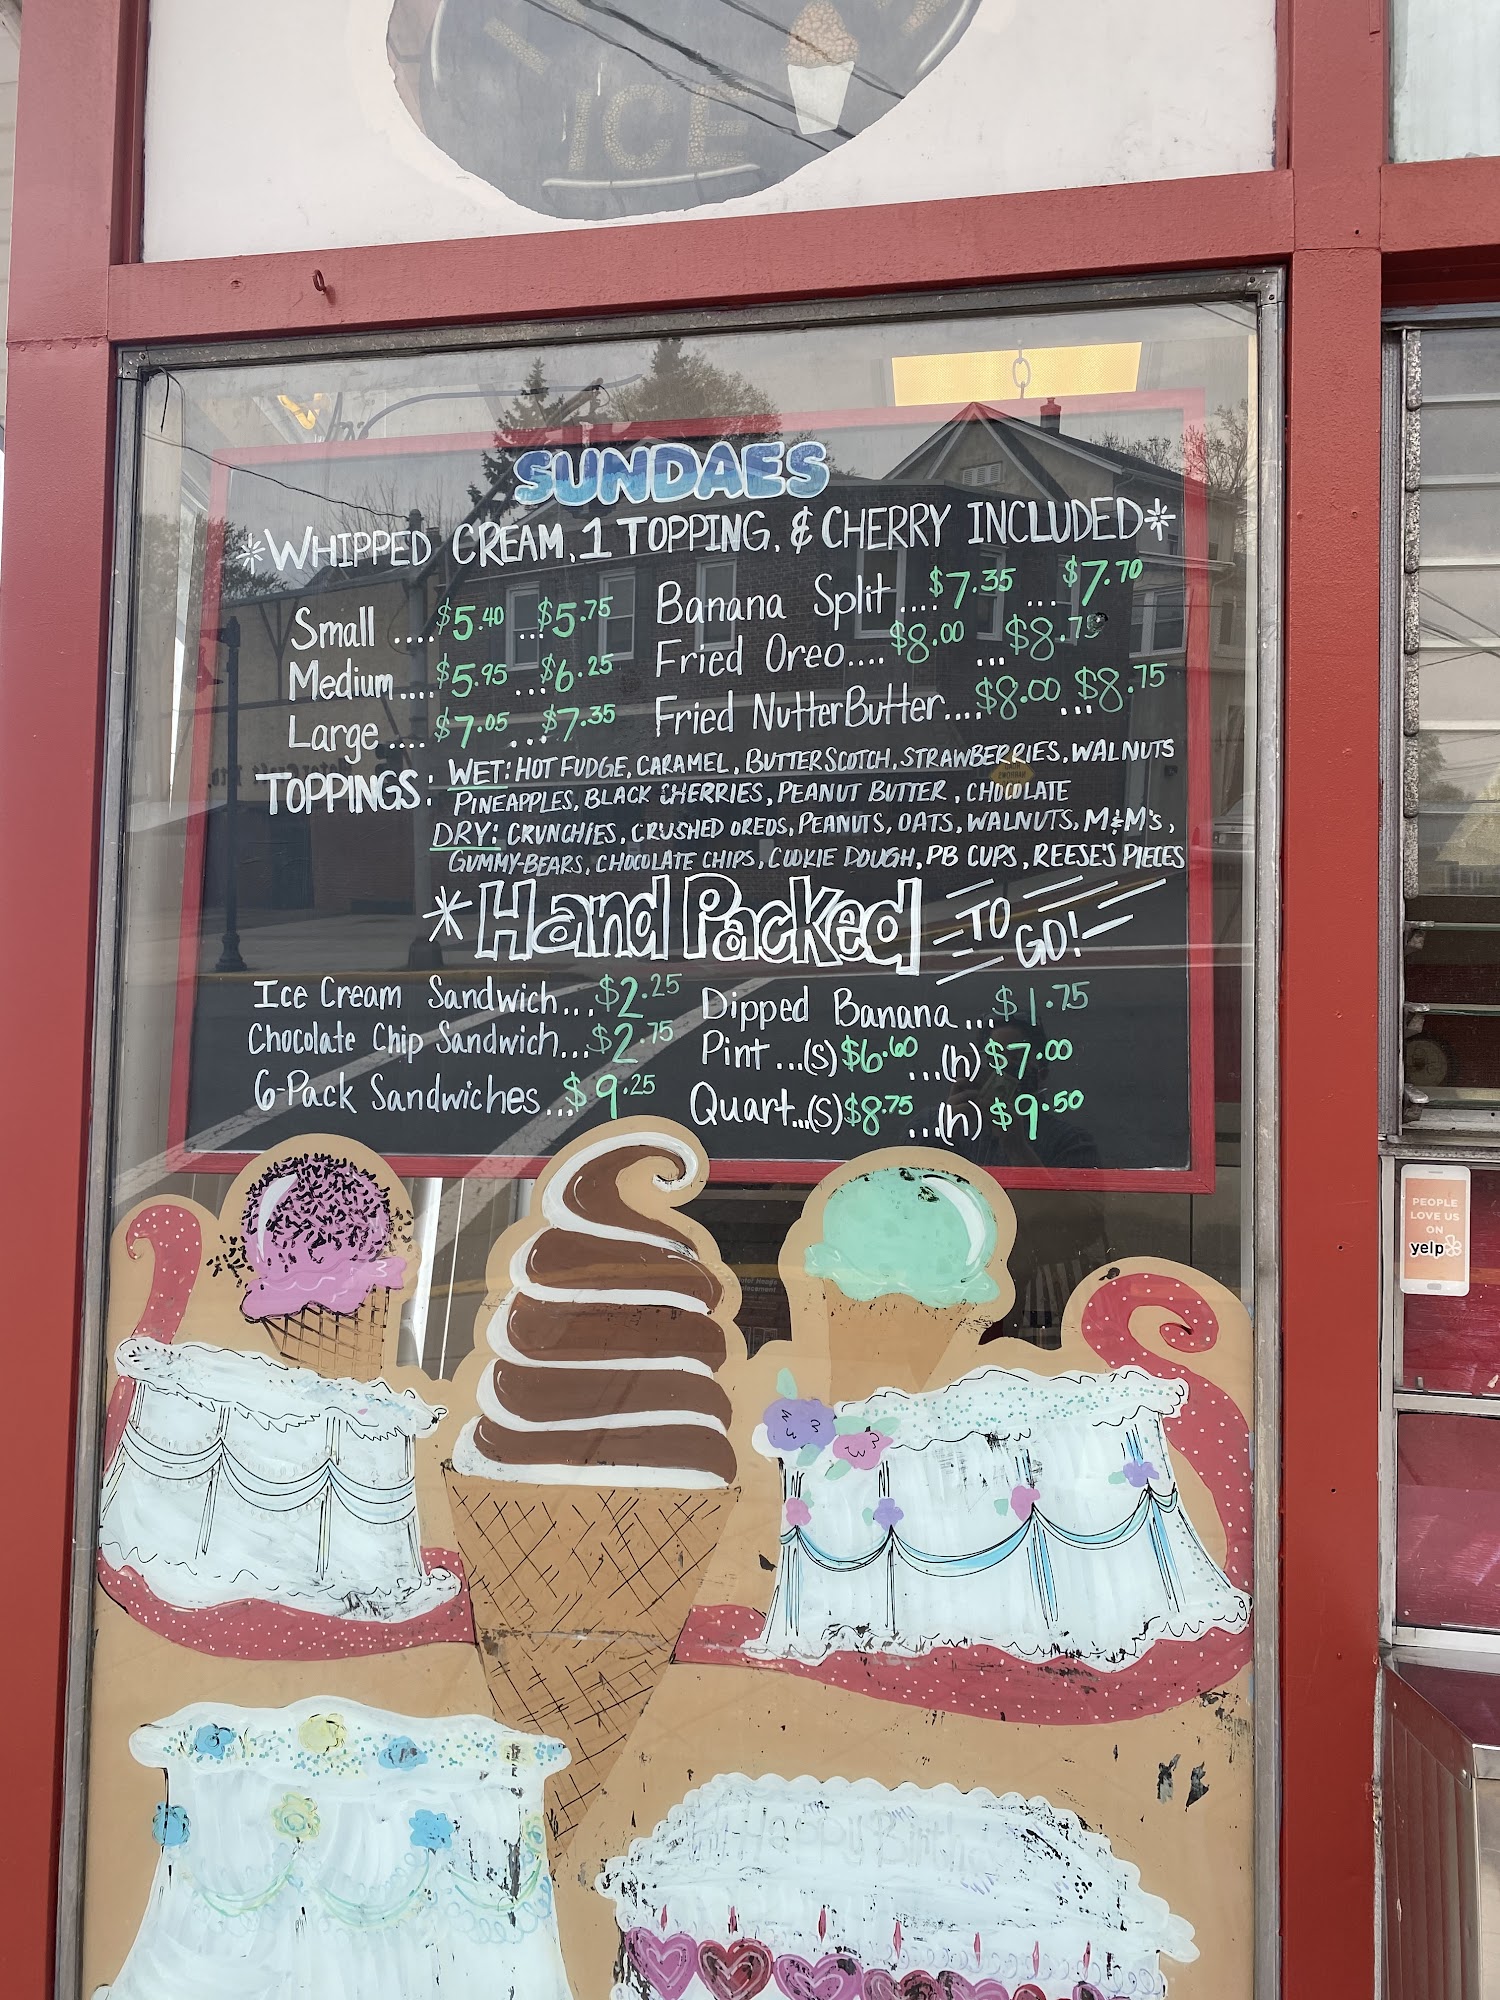 ICE
SUNDAES
*WHIPPED CREAM, 1 TOPPING, & CHERRY INCLUDED*
Small ....$5.40 ...$5.75
Medium....$5.95 ...$6.25
Large .... $7.05 ...$7.35
Banana Split....$7.35 ... $7.70
Fried Oreo.... $8.00 ... $8.75
Fried NutterButter....$8.00 ...$8.75
TOPPINGS: WET: HOT FUDGE, CARAMEL, BUTTERSCOTCH, STRAWBERRIES, WALNUTS
PINEAPPLES, BLACK CHERRIES, PEANUT BUTTER, CHOCOLATE
DRY: CRUNCHIES, CRUSHED OREOS, PEANUTS, OATS, WALNUTS, M&M's,
GUMMY-BEARS, CHOCOLATE CHIPS, COOKIE DOUGH, PB CUPS, REESE'S PIECES
*Hand Packed TO GO!
Ice Cream Sandwich...$2.25
Chocolate Chip Sandwich...$2.75
6-Pack Sandwiches...$9.25
Dipped Banana...$1.75
Pint ...(S)$6.60 ...(h)$7.00
Quart...(S)$8.75 ...(h) $9.50
PEOPLE
LOVE US
ON
yelp
Happy Birthday